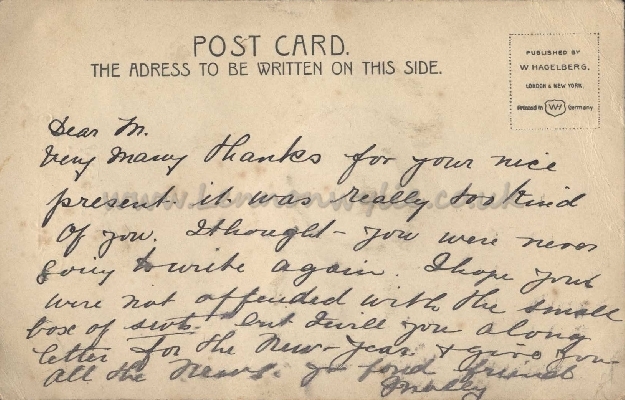 POST CARD.
THE ADRESS TO BE WRITTEN ON THIS SIDE.
PUBLISHED BY
W HAGELBERG.
LONDON & NEW YORK.
Printed in WH Germany
Dear M.
Very Many thanks for your nice
present it was really too kind
of you. I thought you were never
going to write again. I hope you
were not offended with the small
box of swts. but I will you a long
letter for the New-Year & give you
all the News. yr fond friend
Molly